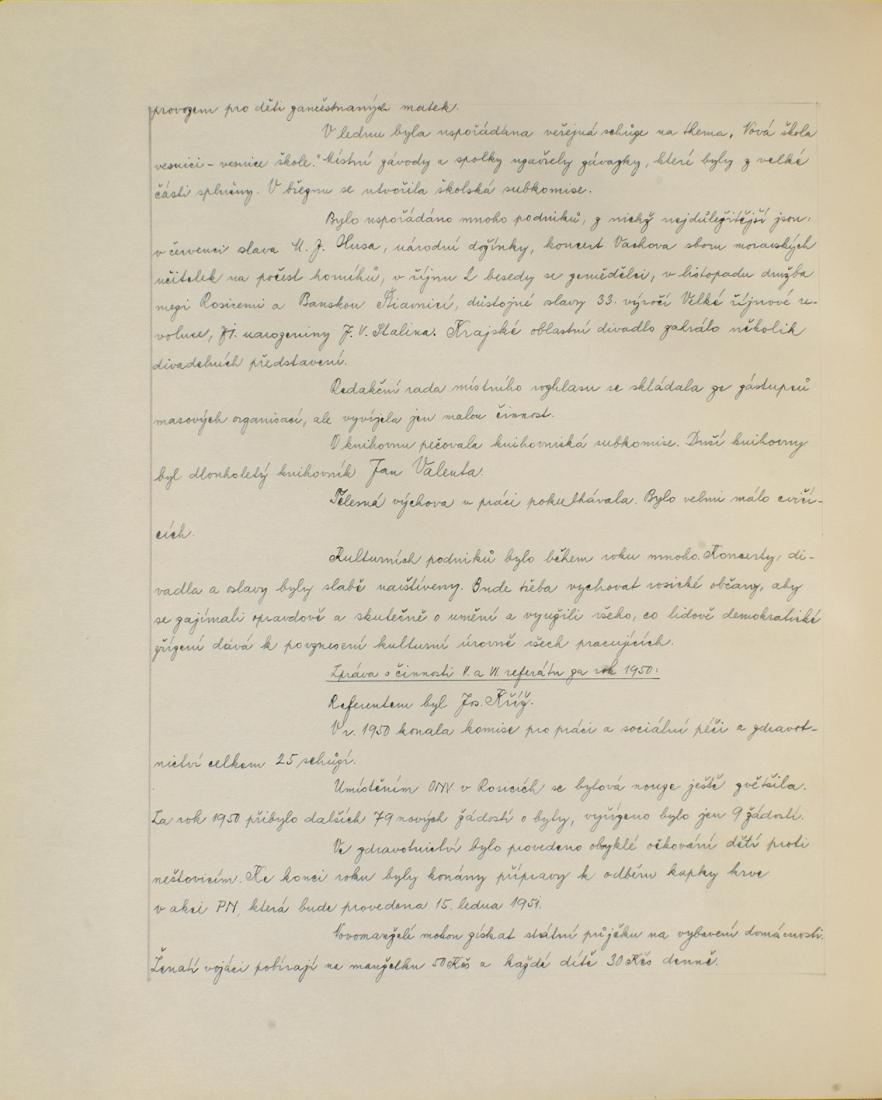 provozem pro děti zaměstnaných matek.
V lednu byla uspořádána veřejná schůze na thema „Nová škola
vesnici – vesnice škole." Místní závody a spolky uzavřely závazky, které byly z velké
části splněny. V březnu se utvořila školská subkomise.
Bylo uspořádáno mnoho podniků, z nichž nejdůležitější jsou:
v červenci slava M. J. Husa, národní dožínky, koncert Vachova sboru moravských
učitelek na počest horníků, v říjnu 2 besedy se zemědělci, v listopadu družba
mezi Rosicemi a Banskou Štiavnicí, důstojné slavy 33. výročí Velké říjnové re-
voluce, 71. narozeniny J. V. Stalina. Krajské oblastní divadlo zahrálo několik
divadelních představení.
Redakční rada místního rozhlasu se skládala ze zástupců
masových organisací, ale vyvíjela jen malou činnost.
O knihovnu pečovala knihovnická subkomise. Duší knihovny
byl dlouholetý knihovník Jan Valenta.
Tělesná výchova v práci pokulhávala. Bylo velmi málo cviči-
cích.
Kulturních podniků bylo během roku mnoho. Koncerty, di-
vadla a oslavy byly slabě navštíveny. Bude třeba vychovat rosické občany, aby
se zajímali opravdově a skutečně o umění a využili všeho, co lidově demokratické
zřízení dává k povznesení kulturní úrovně všech pracujících.
Zpráva o činnosti V. a VI. referátu za rok 1950:
Referentem byl Jos. Kříž.
V r. 1950 konala komise pro práci a sociální péči a zdravot-
nictví celkem 25 schůzí.
Umístěním ONV v Rosicích se bytová nouze ještě zvětšila.
Za rok 1950 přibylo dalších 79 nových žádostí o byty, vyřízeno bylo jen 9 žádostí.
Ve zdravotnictví bylo provedeno obvyklé očkování dětí proti
neštovicím. Ke konci roku byly konány přípravy k odběru kapky krve
v akci PN, která bude provedena 15. ledna 1951.
Novomanželé mohou získat státní půjčku na vybavení domácnosti.
Ženatí vojáci pobírají na manželku 50 Kčs a každé dítě 30 Kčs denně.